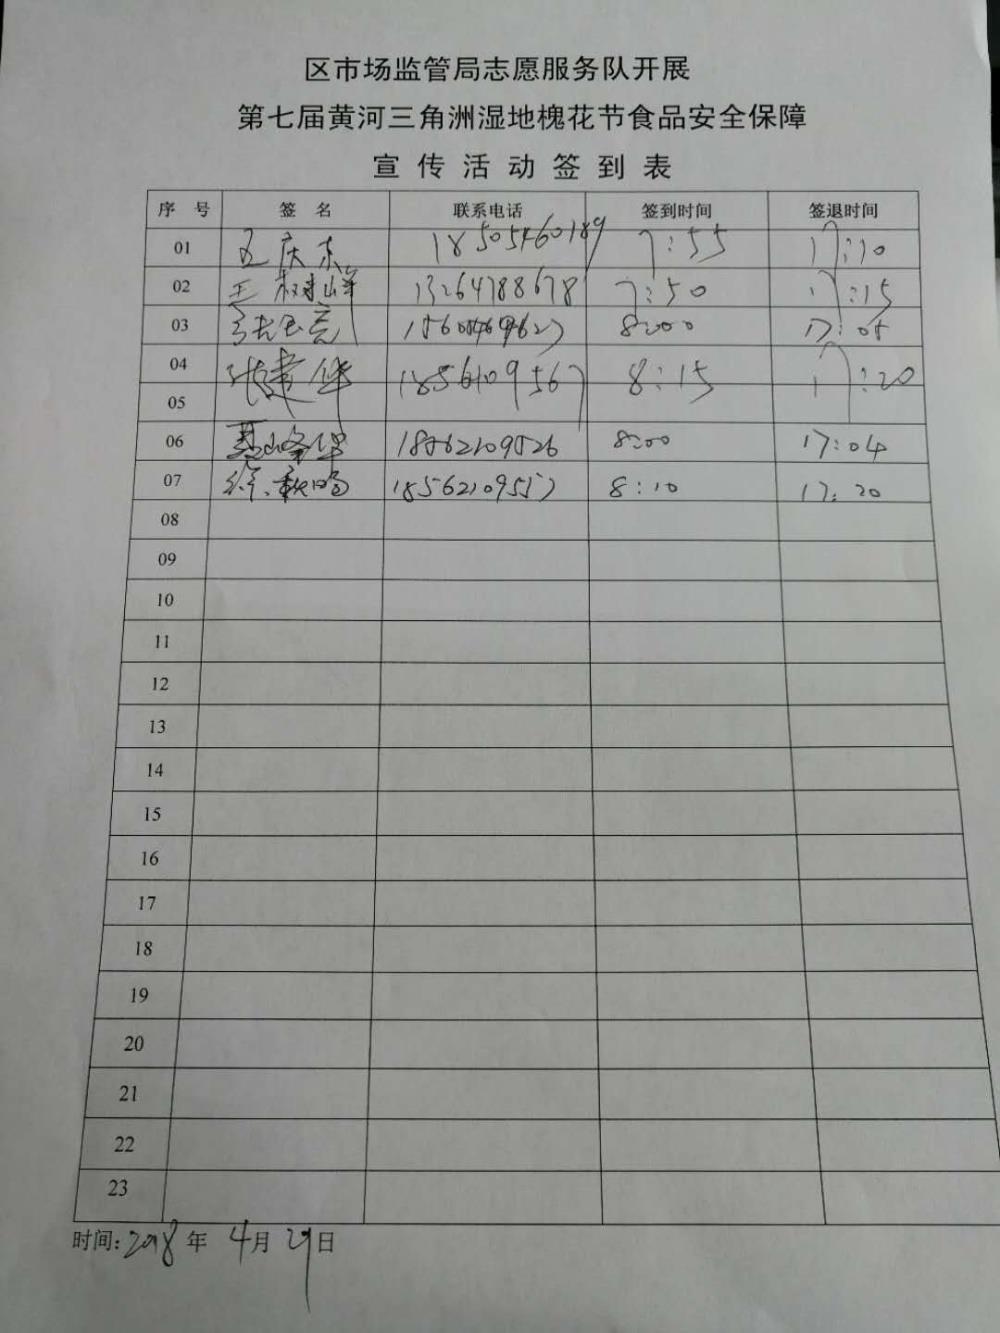 区市场监管局志愿服务队开展
第七届黄河三角洲湿地槐花节食品安全保障
宣传活动签到表
序号 签名 联系电话 签到时间 签退时间
01 王庆东 18505460189 7:55 17:10
02 王树峰 13264788678 7:50 17:15
03 8:00 17:05
04 张建华 18561109567 8:15 17:20
05
06 18562109526 8:00 17:04
07 徐秋鸣 18562109557 8:10 17:20
08
09
10
11
12
13
14
15
16
17
18
19
20
21
22
23
时间:2018年4月29日